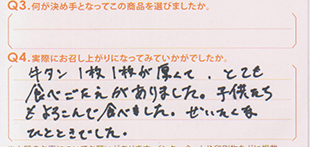 Q3.何が決め手となってこの商品を選びましたか。
Q4.実際にお召し上がりになってみていかがでしたか。
牛タン1枚1枚が厚くて、とても
食べごたえがありました。子供たち
もよろこんで食べました。ぜいたくな
ひとときでした。